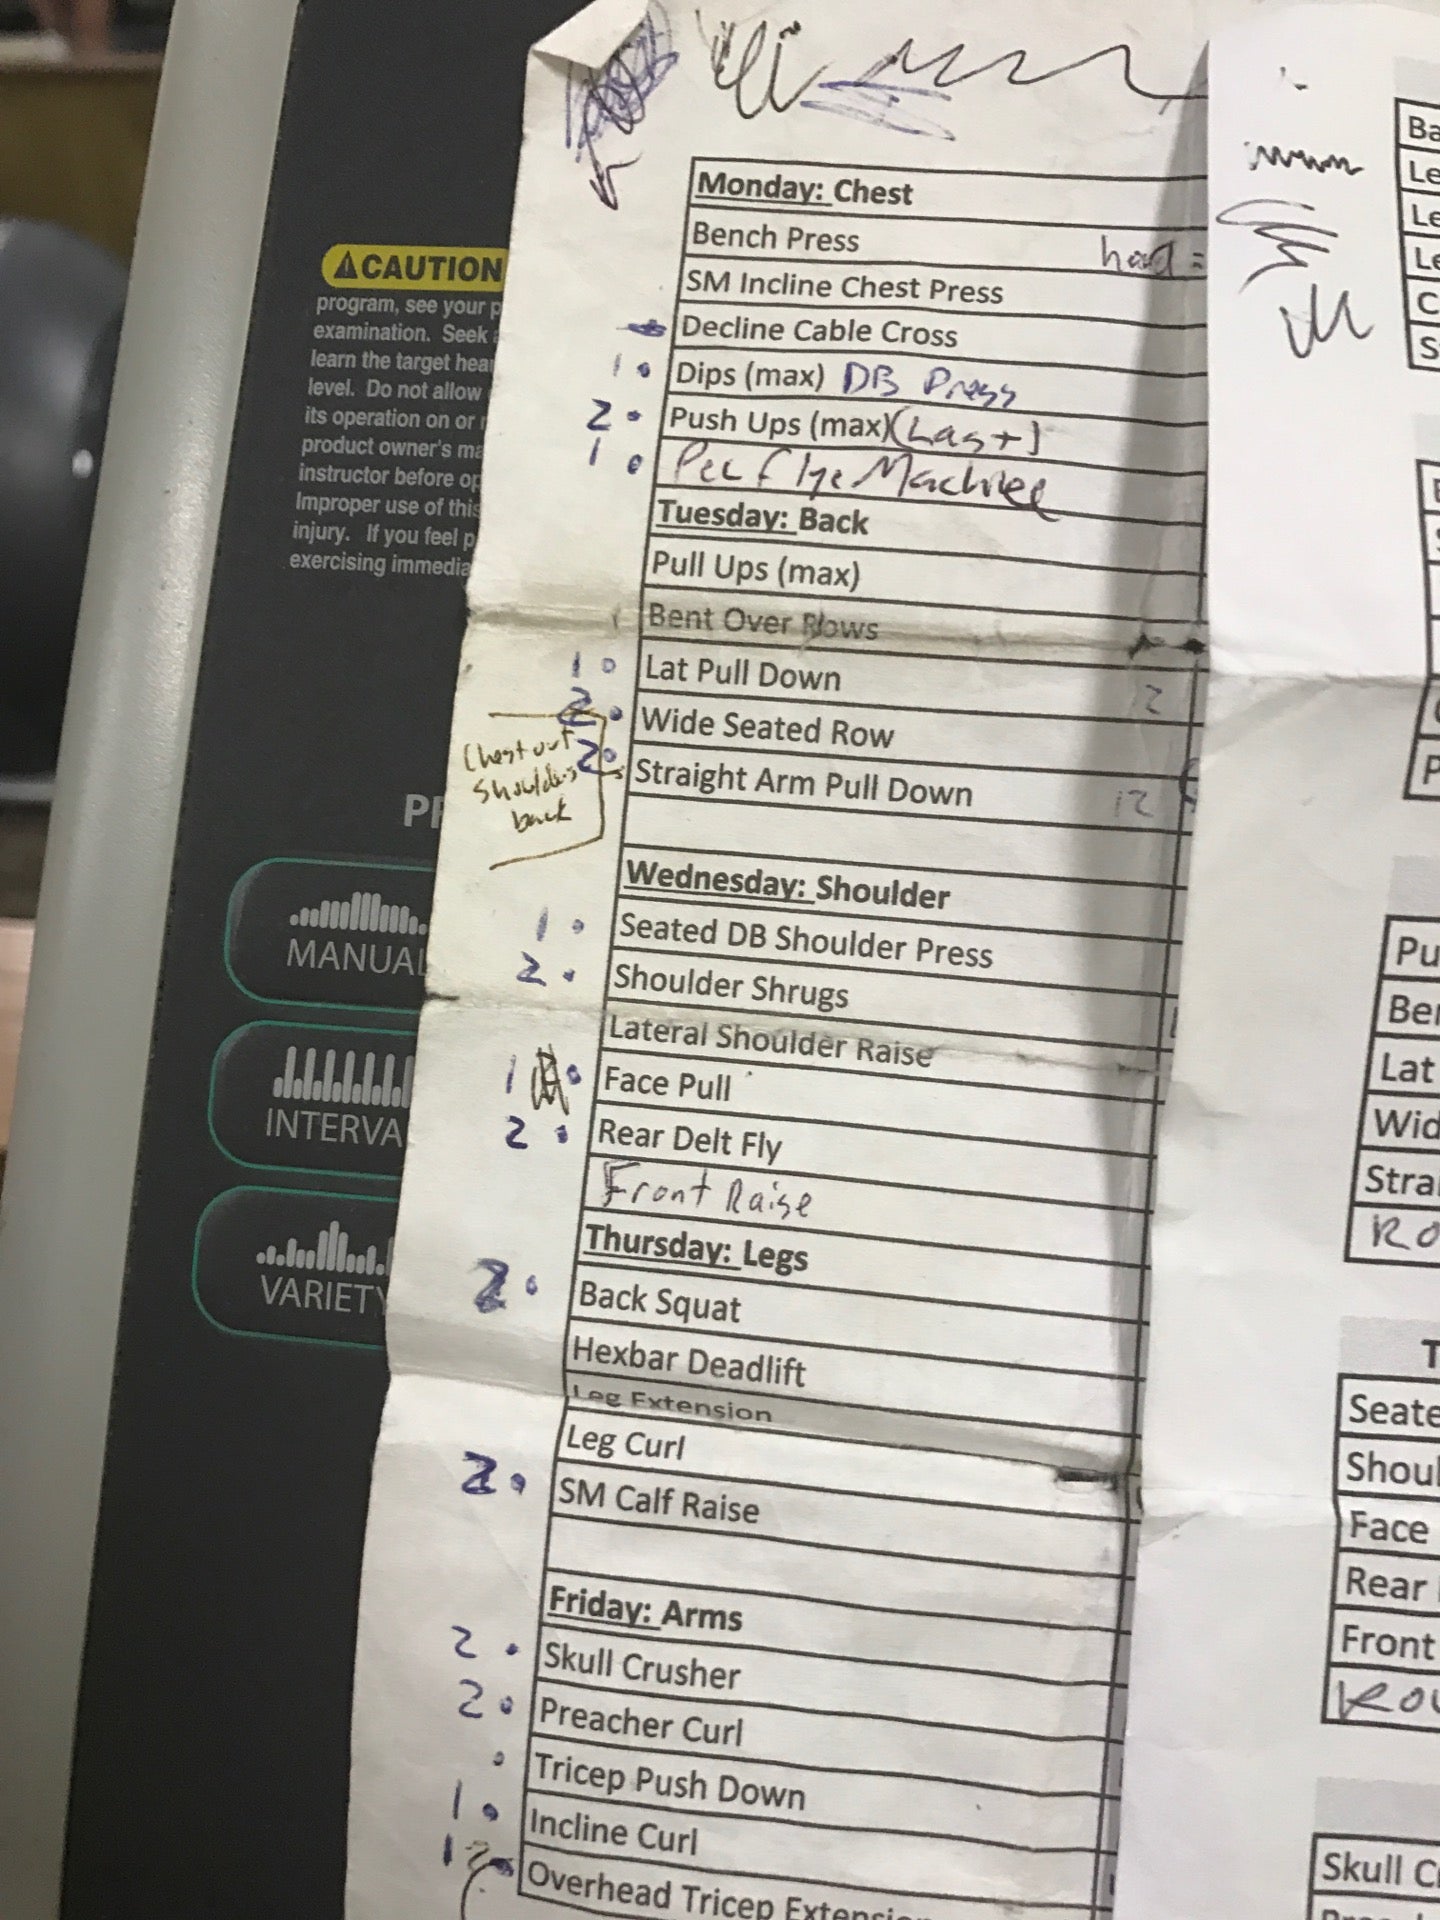 Monday: Chest
Bench Press
SM Incline Chest Press
Decline Cable Cross
1 Dips (max) DB Press
2 Push Ups (max)(Last)
1 Pec Flye Machine
Tuesday: Back
Pull Ups (max)
Bent Over Rows
1 Lat Pull Down 2
2 Wide Seated Row
2 Straight Arm Pull Down 12
Chest out
Shoulders
back
Wednesday: Shoulder
1 Seated DB Shoulder Press
2 Shoulder Shrugs
Lateral Shoulder Raise
1 Face Pull
2 Rear Delt Fly
Front Raise
Thursday: Legs
2 Back Squat
Hexbar Deadlift
Leg Extension
Leg Curl
2 SM Calf Raise
Friday: Arms
2 Skull Crusher
2 Preacher Curl
Tricep Push Down
1 Incline Curl
1 Overhead Tricep Extensio
CAUTION
program, see your p
examination. Seek
learn the target hea
level. Do not allow
its operation on or
product owner's ma
instructor before op
Improper use of this
injury. If you feel p
exercising immedia
PR
MANUAL
INTERVA
VARIETY
Ba
Le
Le
Le
C
S
Pu
Ben
Lat
Wid
Stra
Ro
T
Seate
Shoul
Face
Rear
Front
Rou
Skull C